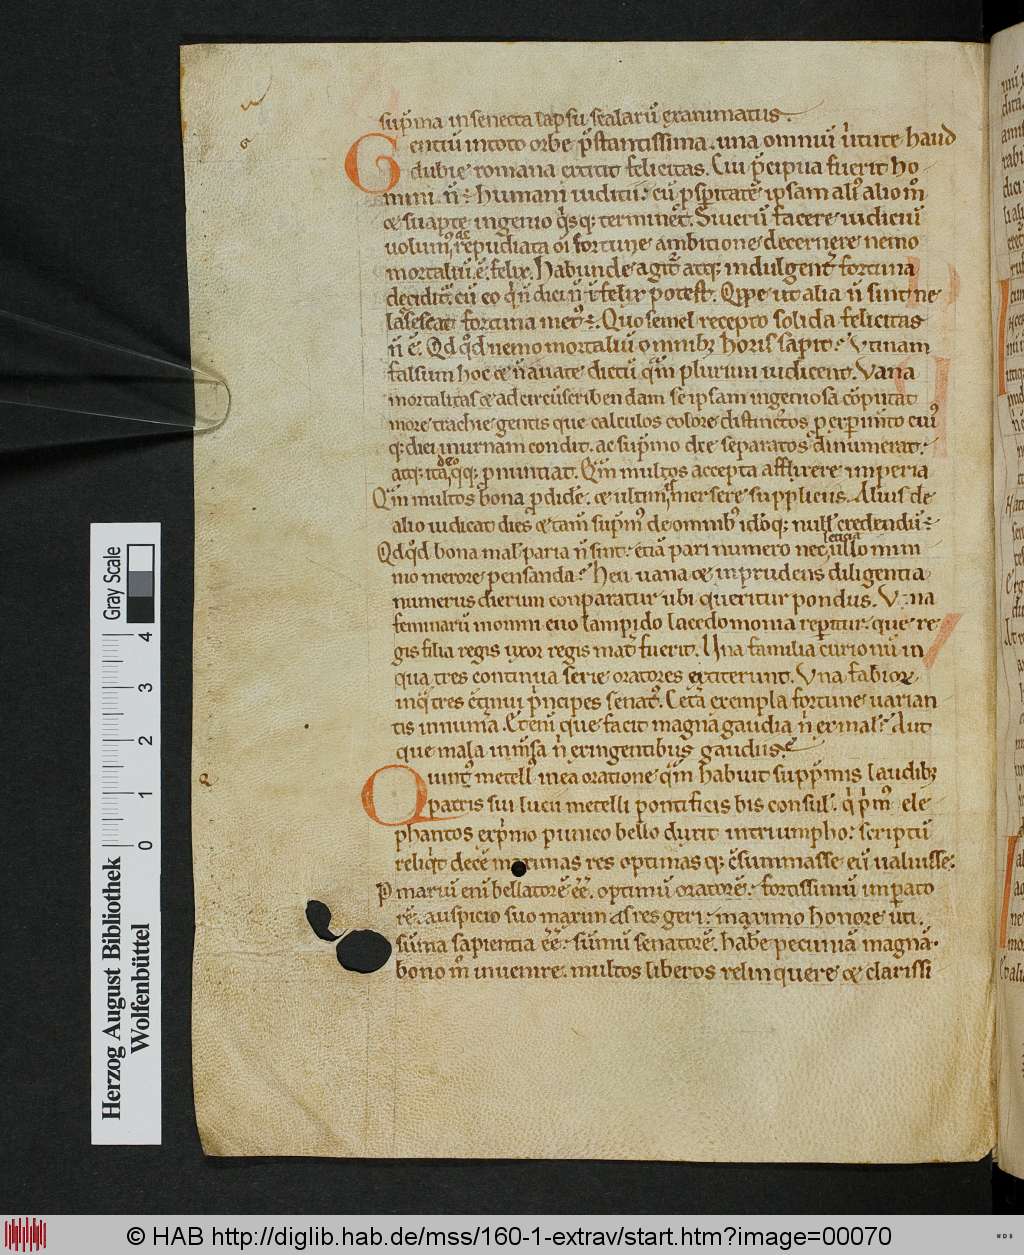 sup̄ma in senecta lapsu scalarū exanimatus.
Gentiū in toto orbe p̄stantissima. una omniū u̍tute haud
dubie romana extitit felicitas. Cui p̄cipua fuerit ho
mini. n̄ ÷ humani iudicii. cū ꝓsꝑitatē ipsam ali᷒ alio m̊
& suapte ingenio q̍sq; terminet. Si uerū facere iudiciū
uolum᷒ ac repudiata om̄i fortune ambitione decernere nemo
mortaliū. ē. felix. Habunde agit᷑ atq; indulgent᷑ fortuna
decidit᷑. cū eo q̍ n̄ dici n̄ felix potest. Qippe ut alia n̄ sint ne
lascescat fortuna met᷒ ÷. Quo semel recepto solida felicitas
n̄ ē. Qd qd̄ nemo mortaliū omnibꝫ horis sapit. Utinam
falsum hoc & n̄ a uate dictū q̄m plurimi iudicent. Vana
mortalitas & ad circūscribendam se ipsam ingeniosa cōputat
more trachie gentis que calculos colore distinctos ꝑ exꝑim̄to cui᷒
q; diei in urnam condit. ac sup̄mo die separatos dinumerat.
atq; ita de q̊q; ꝓnuntiat. Qm̄ multos accepta afflixere imperia
Qm̄ multos bona ꝑdidē. & ultim᷒ mersere suppliciis. Alius de
alio iudicat dies & tam̄ sup̄m᷒ de omnib᷒ idōq; null᷒ credendū ÷
Qd qd̄ bona mal᷒ paria n̄ sunt. etiā pari numero nec leticia ullo mini
mo merore pensanda. Heu uana & inprudens diligentia
numerus dierum conparatur ubi queritur pondus. Una
feminarū in omni euo lampido lacedomonia reꝑitur. que re
gis filia regis uxor regis mat᷑ fuerit. Una familia curionū in
qua tres continua serie oratores extiterunt. Una fabioꝝ
in q̄ tres ctinui p̍ncipes senat᷒. Cet̄a exempla fortune uarian
tis innum̄a. Etenī que facit magna gaudia n̍ ex mal᷒. Aut
que mala inm̄sa n̍ ex ingentibus gaudiis.
Quint᷒ metell᷒ in ea oratione q̄m habuit supp̄mis laudibꝫ
patris sui lucii metelli pontificis bis consul᷒. q̍ p̍m᷒ ele
phantos ex p̍mo punico bello duxit in triumpho. scriptū
reliq̍t decē maximas res optimas q; c̄summasse eū ualuisse.
P̍ mariū eni bellatorē ēē. optimū oratorē. fortissimū inpato
rē. auspicio suo maximas res geri. maximo honore uti.
sūma sapientia ēē. sūmū senatorē. habe pecuniā magnā.
bono m̊ inuenire. multos liberos relinquere & clarissi
Herzog August Bibliothek
Wolfenbüttel
Gray Scale
0 1 2 3 4
© HAB http://diglib.hab.de/mss/160-1-extrav/start.htm?image=00070